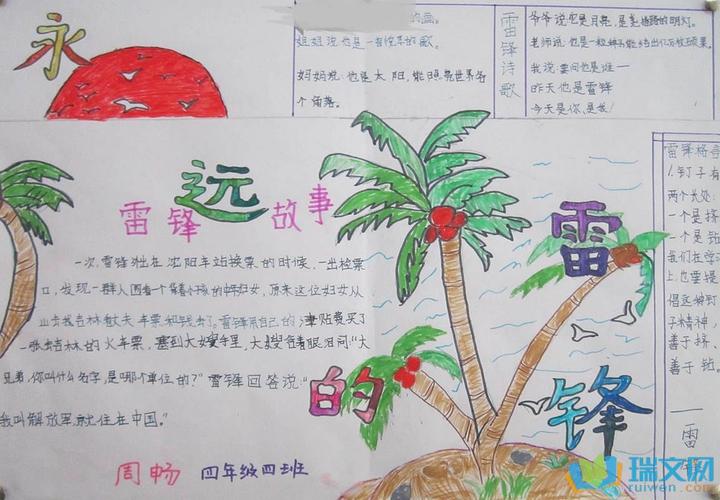 永远的雷锋
的画。
姐姐说他是一首悦耳的歌。
妈妈说,他是太阳,能照亮世界每
个角落。
雷锋诗歌
爷爷说他是月亮,是
老师说他是一粒种子能结出
我说,要问他是谁——
昨天他是雷锋
今天是你、是我!
雷锋故事
一次,雷锋外出在沈阳车站换票的时候,一出检票
口,发现一群人围着一个背着小孩的中年妇女,原来这位妇女从
山东去吉林看丈夫,车票和钱丢了。雷锋用自己的津贴费买了
一张去吉林的火车票,塞到大嫂手里,大嫂含着眼泪问:“大
兄弟,你叫什么名字,是哪个单位的?”雷锋回答说:“
我叫解放军,就住在中国。”
周畅 四年级四班
雷锋格言
1.钉子有
两个长处:
一个是挤
一个是钻
我们在学习
上也要提
倡这种钉
子精神,
善于挤、
善于钻。
——雷
锋
瑞文网
ruiwen.com